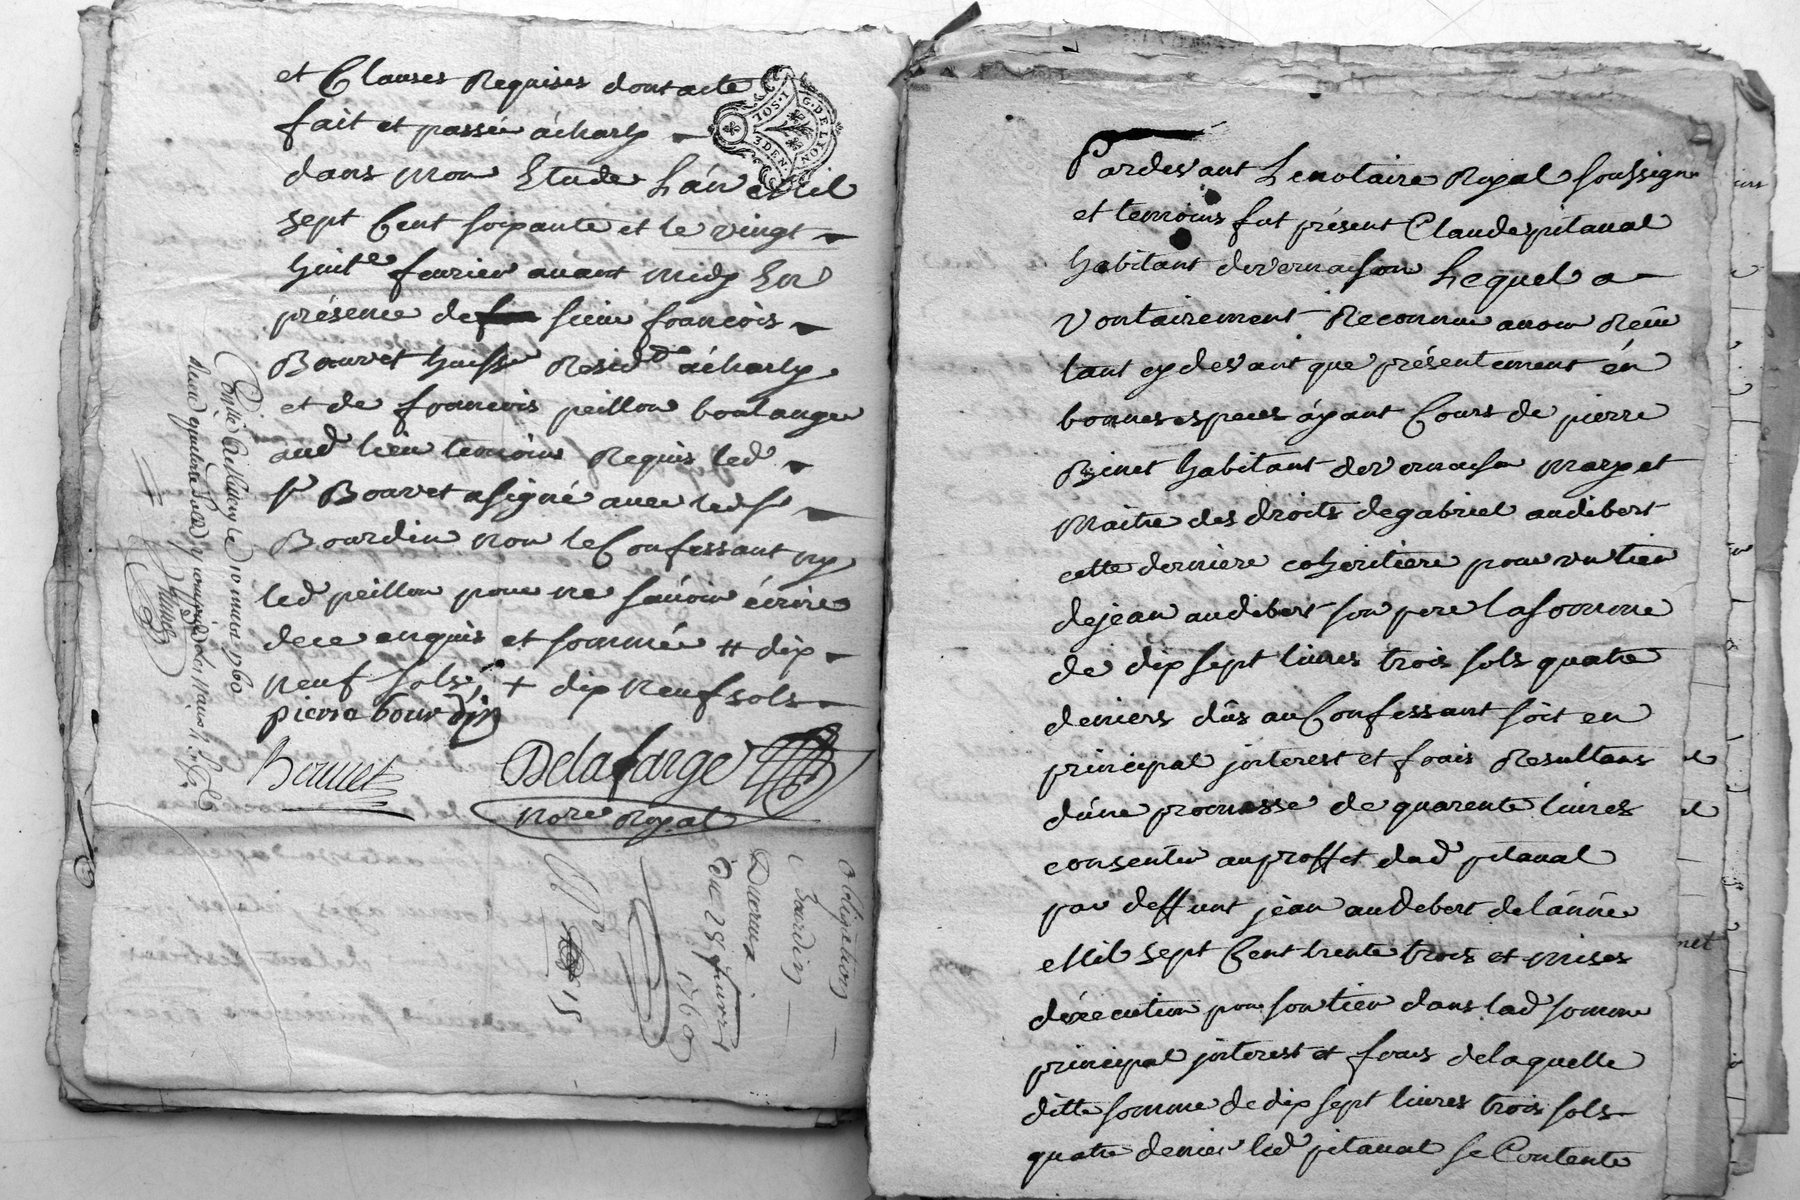 et Clauses Requises dont acte
fait et passé à charly
dans mon Etude L'an Mil
sept Cent soixante et le vingt
huite fevrier avant midy En
présence de sieur francois
Bouvet huisr Residt à charly
et de francois peillon boulanger
aud lieu temoins Requis led
sr Bouvet a signé avec led sr
Bourdin non le Confessant ny
led peillon pour ne sávoir écrire
de ce enquis et sommé # dix
neuf sols + dix neuf sols
pierre bourdin
Bouvet Delafarge
Nore Royal
G. DE LYON
10S. 1
3 DEN
Conlé le 10 mars 1760
Reçu
Obligation
Bourdin
Du 28 fevrier
1760
15
Pardevant Le notaire Royal soussigne
et temoins fut présent Claude pitaval
habitant de vernaison Lequel a
vontairement Reconnu avoir Reçu
tant cy devant que présentement én
bonnes especes áyant Cours de pierre
Binet habitant de vernaison mary et
Maitre des droits de gabriel audibert
cette derniere coheritiere pour un tier
de jean audibert son pere la somme
de dix sept livres trois sols quatre
deniers dûs au Confessant soit en
principal jnterest et frais Resultans
d'úne promesse de quarente livres
consentie au proffit dud pitaval
par deffunt jéan audebert de l'ánnée
Mil sept Cent trente trois et mises
d'éxecution pour son tier dans lad somme
principal jnterest et frais de laquelle
ditte somme de dix sept livres trois sols
quatre denier led pitaval se Contente